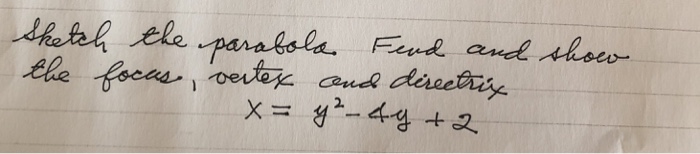 Sketch the parabola. Find and show
the focus, vertex and directrix
x = y² - 4y + 2